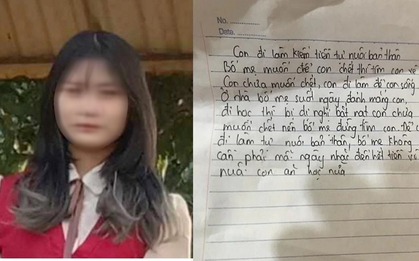 No.
Date.
Con đi làm kiếm tiền tự nuôi bản thân
Bố mẹ muốn để con chết thì tìm con về
Con chưa muốn chết, con đi làm để con sống
Ở nhà bố mẹ suốt ngày đánh mắng con,
đi học thì bị dị nghị bắt nạt con chưa
muốn chết nên bố mẹ đừng tìm con. Để con
đi làm tự nuôi bản thân, bố mẹ không
cần phải mỗi ngày nhắc đến hết tiền vì
nuôi con ăn học nữa